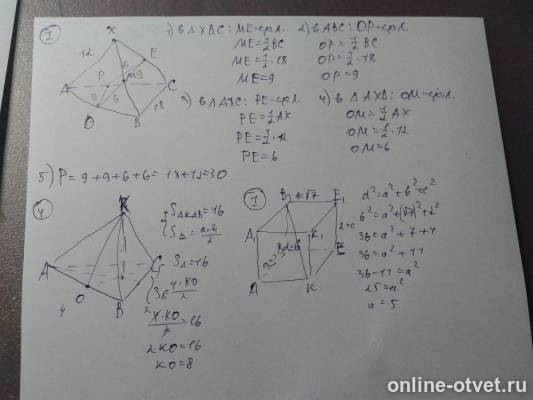 1
X
12
E
6
A
P
M
9
C
9
6
18
O
B
1) в ΔXBC: ME-ср.л.
ME=1/2BC
ME=1/2·18
ME=9
2) в ABC: OP-ср.л.
OP=1/2BC
OP=1/2·18
OP=9
3) в ΔAXC: PE-ср.л.
PE=1/2AX
PE=1/2·12
PE=6
4) в ΔAXB: OM-ср.л.
OM=1/2AX
OM=1/2·12
OM=6
5) P=9+9+6+6=18+12=30
4
K
A
C
O
4
B
SΔKAB=16
SΔ=a·h/2
SΔ=16
SΔ=4·KO/2
4·KO/2=16
2KO=16
KO=8
B₁
b=√7
E₁
A₁
K₁
2=c
d=6
E
a=?
A
K
d²=a²+b²+c²
6²=a²+(√7)²+2²
36=a²+7+4
36=a²+11
36-11=a²
25=a²
a=5
online-otvet.ru